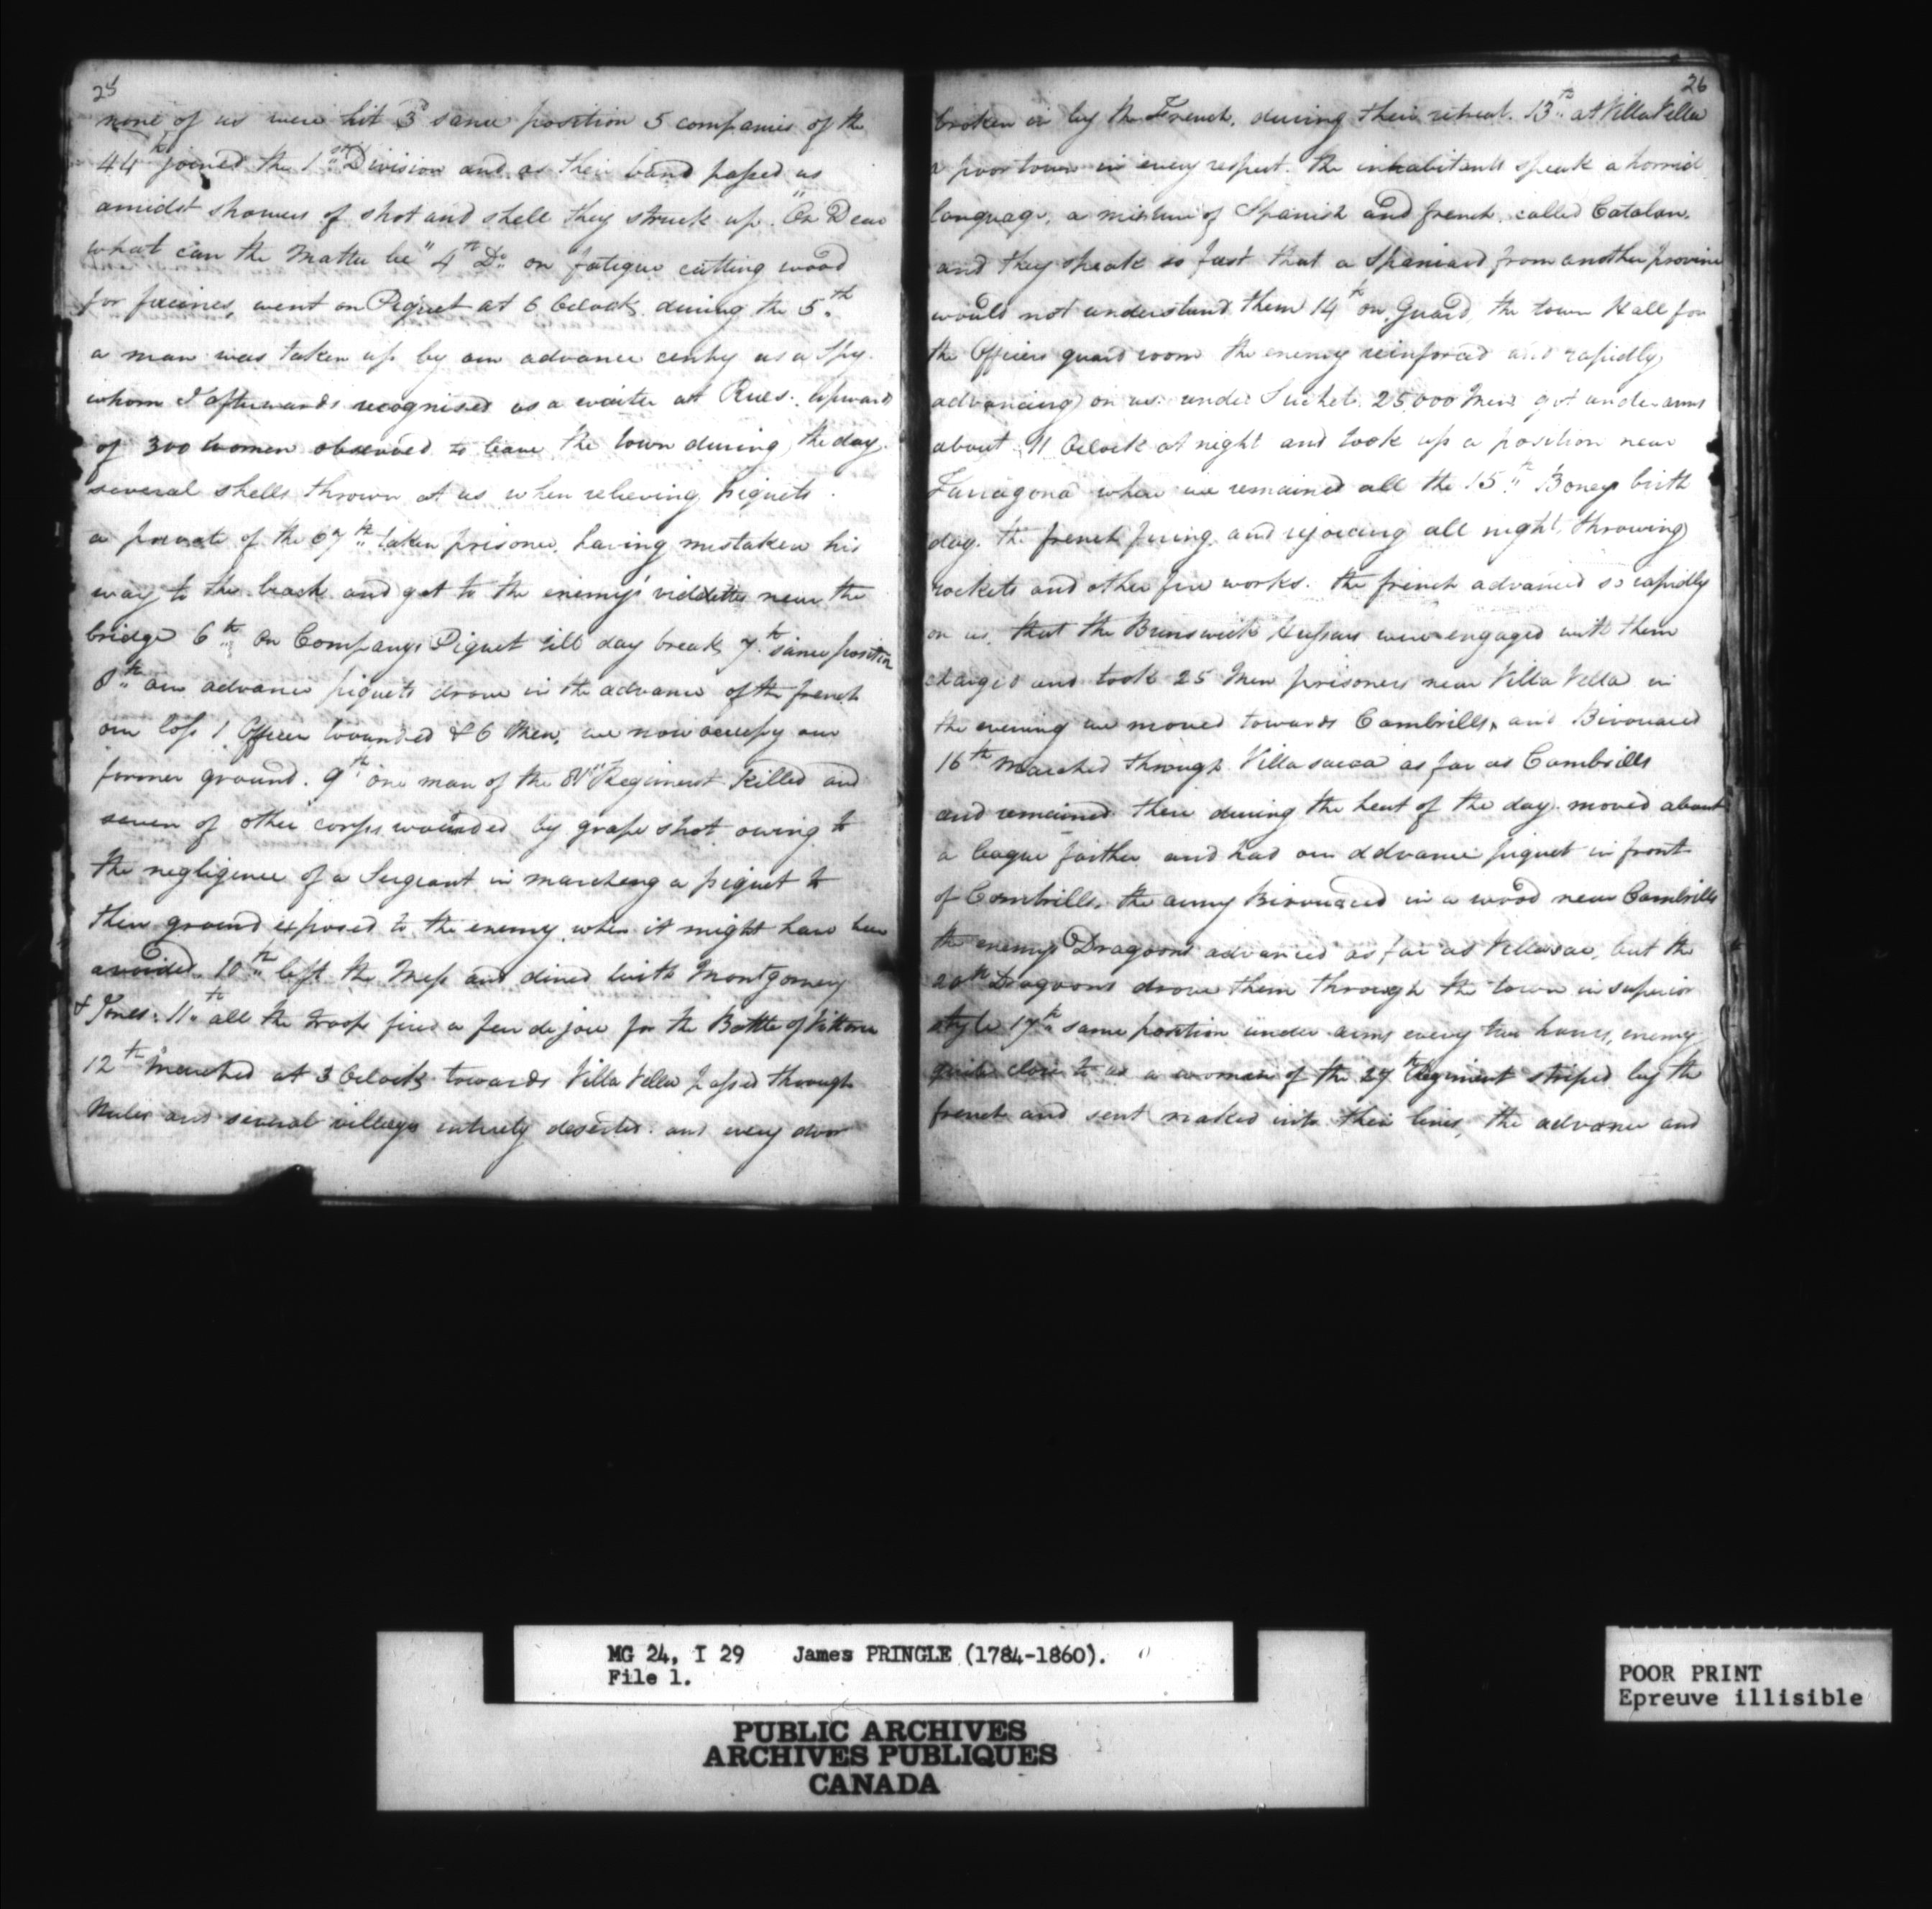 25
none of us were hit 3d same position 5 companies of the
44th joined the 1st Division and as their band passed us
amidst showers of shot and shell they struck up "Oh Dear
what can the Matter be" 4th Do on fatigue cutting wood
for facines, went on Piquet at 6 Oclock during the 5th
a man was taken up by our advance centry as a Spy.
whom I afterwards recognised as a waiter at Rues. Upwards
of 300 women observed to leave the town during the day.
several shells thrown at us when relieving piquets.
a private of the 67th taken prisoner having mistaken his
way to the beach and got to the enemy's viddettes near the
bridge 6th On Company's Piquet till day break 7th same position
8th our advance piquets drove in the advance of the french
our loss 1 Officer wounded & 6 Men, we now occupy our
former ground. 9th one man of the 81st Regiment killed and
seven of other corps wounded by grape shot owing to
the negligence of a Sergeant in marching a piquet to
their ground exposed to the enemy when it might have been
avoided. 10th left the Mess and dined with Montgomery
& Jones. 11th all the troops fired a feu de joie for the Battle of Vittoria
12th Marched at 3 Oclock towards Villa Vella passed through
and several villages entirely deserted. and every door
26
broken in by the French, during their retreat. 13th at Villa Vella
a poor town in every respect. the inhabitants speak a horrid
language, a mixture of Spanish and french called Catalan.
and they speak so fast that a Spaniard from another provine
would not understand them 14th on Guard, the town Hall for
the Officers guard room the enemy reinforced and rapidly
advancing on us under Suchet 25,000 Men got under arms
about 11 Oclock at night and took up a position near
Tarragona where we remained all the 15th Boneys birth
day. the french firing and rejoicing all night throwing
rockets and other fire works. the french advanced so rapidly
on us, that the Brunswick Hussars were engaged with them
charged and took 25 Men prisoners near Villa Vella in
the evening we moved towards Cambrills, and Bivouaced
16th Marched through Villa sacca as far as Cambrills
and remained there during the heat of the day. moved about
a league farther and had our advance piquet in front
of Cambrills. the army Bivouaced in a wood near Cambrills
the enemys Dragoons advanced as far as Villasac, but the
20th Dragoons drove them through the town in superior
style 17th same position under arms every two hours, enemy
quite close to us a woman of the 27th Regiment striped by the
french and sent naked into their lines, the advance and
MG 24, I 29 James PRINGLE (1784-1860).
File 1.
PUBLIC ARCHIVES
ARCHIVES PUBLIQUES
CANADA
POOR PRINT
Epreuve illisible